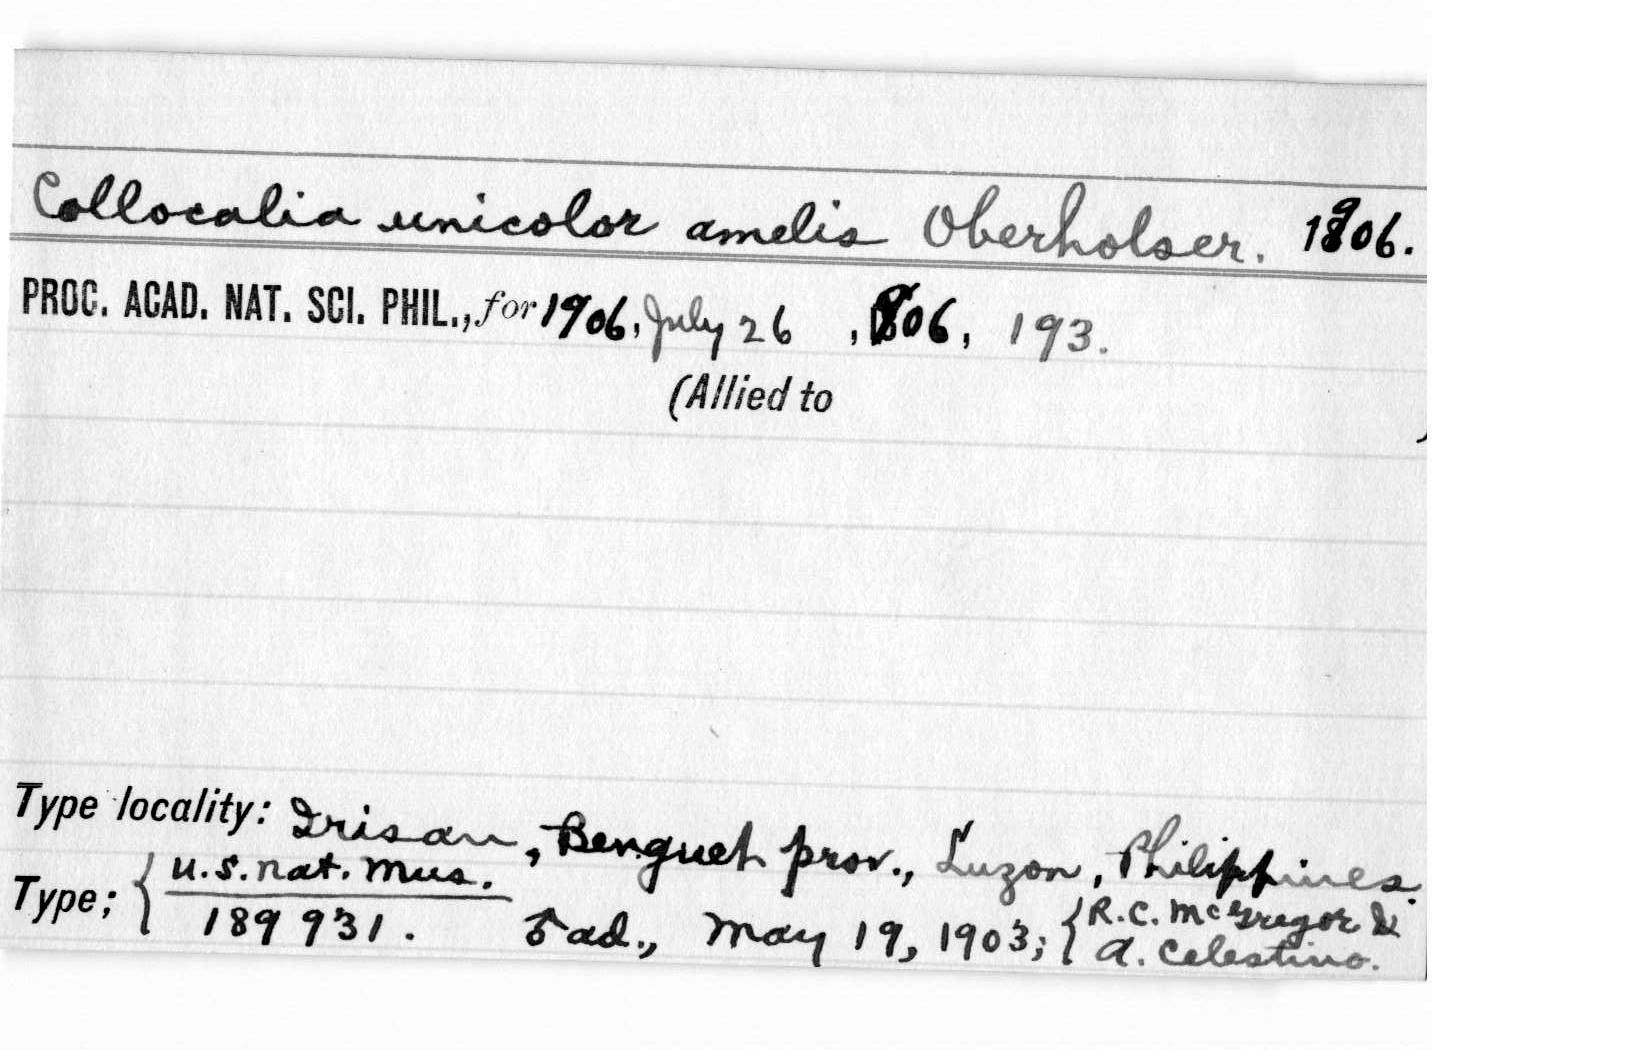 Collocalia unicolor amelis Oberholser. 1906.
PROC. ACAD. NAT. SCI. PHIL., for 1906, July 26, 1906, 193.
(Allied to )
Type locality: Irisan, Benguet prov., Luzon, Philippines.
Type; { U.S. Nat. Mus. / 189931. ♂ ad., May 19, 1903; { R.C. McGregor & A. Celestino.